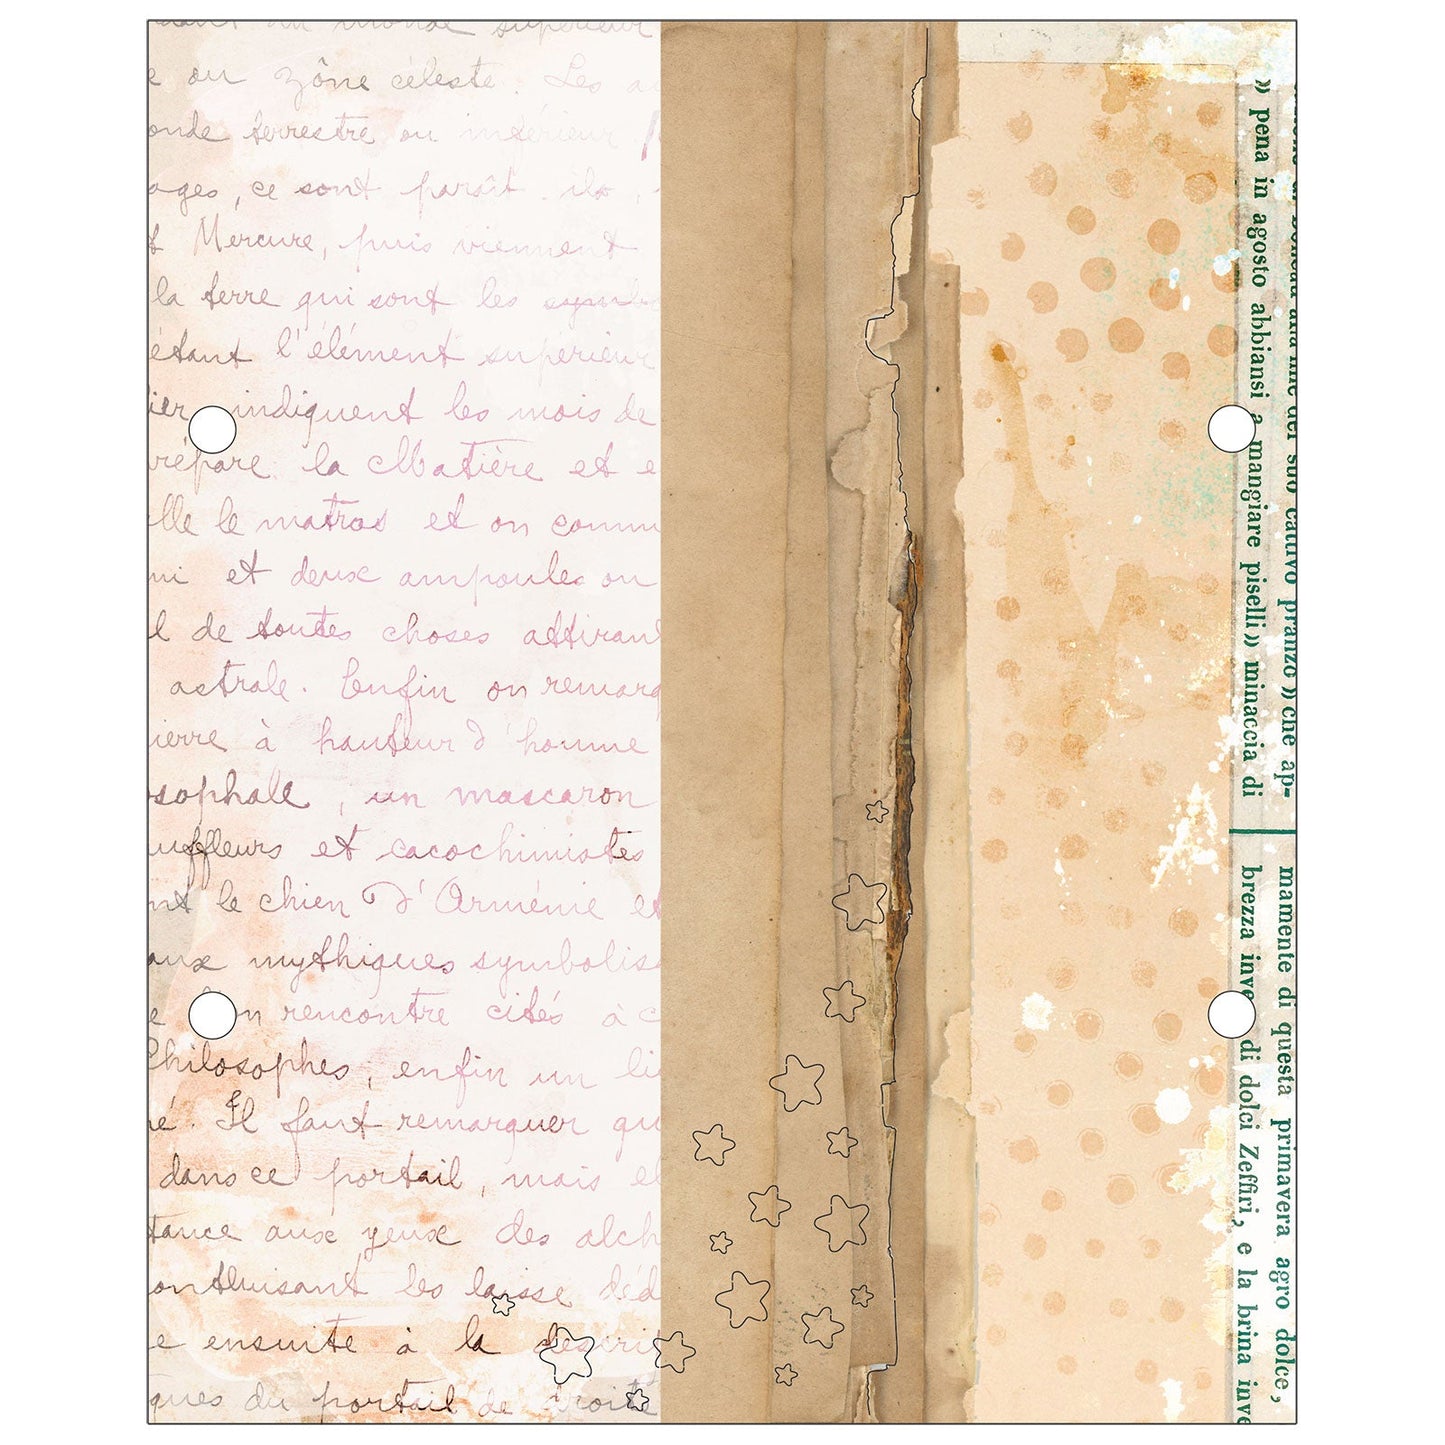 dant du monde supérieur
e ou zône céleste. Les a
onde terrestre ou inférieur
ages, ce sont paraît-ils
t Mercure, puis viennent
la terre qui sont les symb
étant l'élément superieur
ier indiquent les mois de
répare la Matière et e
elle le matras et on comm
ni et deux ampoules ou
l de toutes choses attirant
astrale. Enfin on remarq
ierre à hauteur d'homme
osophale, un mascaron
ouffleurs et cacochimistes
nt le chien d'Arménie et
aux mythiques symbolis
e l'on rencontre cités à c
Philosophes, enfin un li
é. Il faut remarquer qu
dans ce portail, mais el
tance aux yeux des alch
ontluisant les laisse déd
e ensuite à la descrit
ques du portail de droite
alla fine del suo cattivo pranzo » che ap-
» pena in agosto abbiansi a mangiare piselli » minaccia di
mamente di questa primavera agro dolce,
brezza inve di dolci Zeffiri, e la brina inve